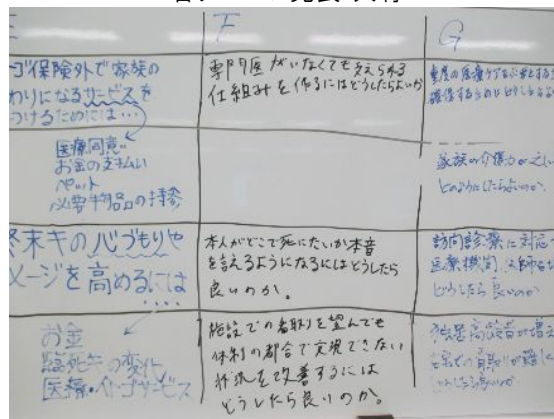 F
G
ゴ保険外で家族の
わりになるサービスを
つけるためには…
医療同意
お金の支払い
ペット
必要物品の持参
終末キの心づもりや
メージを高めるには
お金
臨死キの変化
医療・カイゴサービス
専門医がいなくても支えられる
仕組みを作るにはどうしたらよいか
本人がどこで死にたいか本音
を言えるようになるにはどうしたら
良いのか。
施設での看取りを望んでも
体制の都合で実現できない
状況を改善するには
どうしたら良いのか。
重度の医療ケアを
確保するためにどうしたら
家族の介護力が乏しい
どのようにしたらよいのか、
訪問診療に対応
医療機関、
どうしたら良いのか
独居高齢者が増え
看取りが難しく